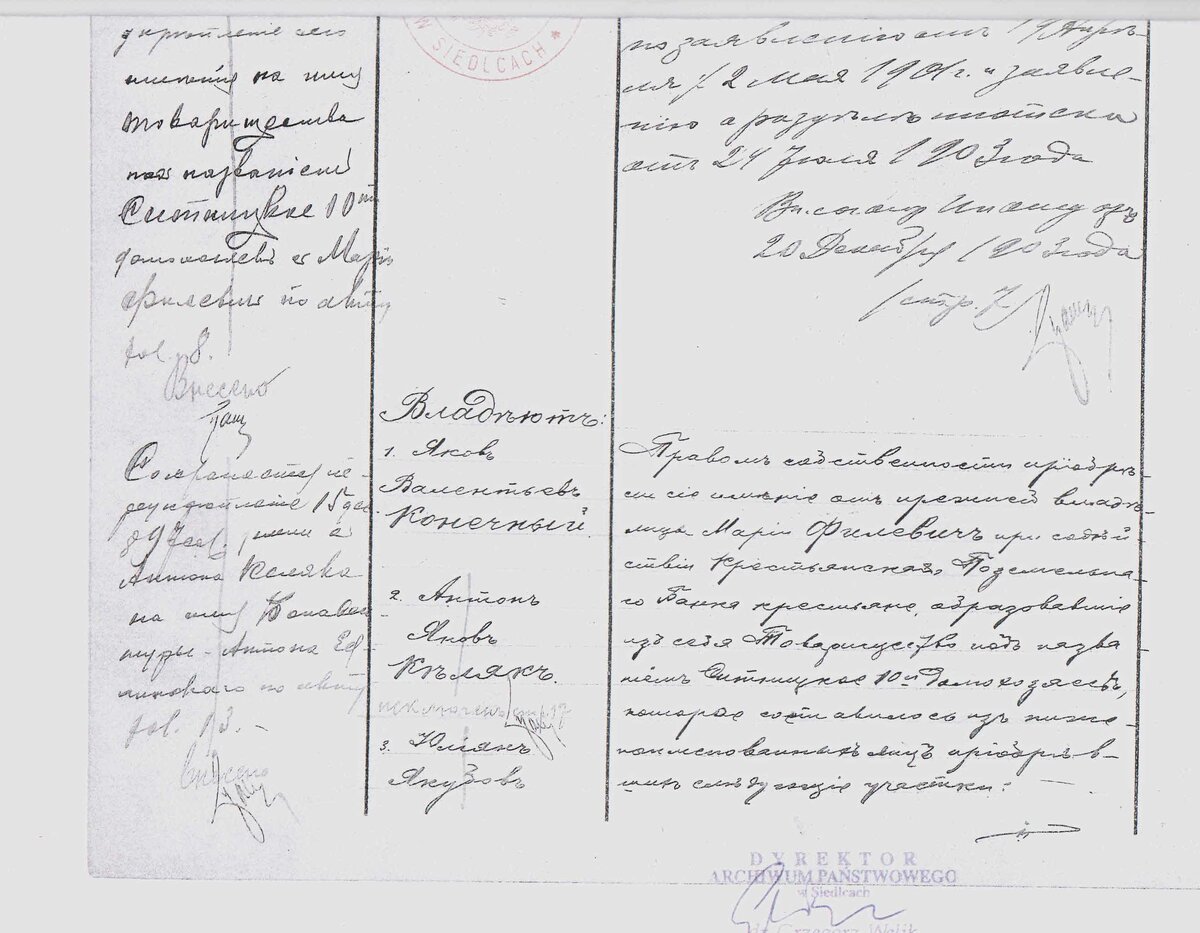 укрѣпленіе сего
имѣнія на имя
товарищества
подъ названіем
Ситницкое 10ти
домохозяевъ с Маріи
Филевичъ по акту
fol. 8.
Внесено
Сохраностереженіе
15
897
Антона Келяка
на имя Бонавен
туры-Антона
по акту
fol. 13. –
Внесено
W SIEDLCACH ★
Владѣютъ:
1. Яковъ
Валентьевъ
Конечный.
2. Антонъ
Яковъ
Кѣлякъ.
исключенъ стр. 17
3. Юліянъ
Якубовъ
по заявленію отъ 19 Апрѣ-
ля / 2 Мая 1901 г. и заявле-
нію а раздѣлъ
отъ 24 Іюля 1903 года
20 Декабря 1903 года
/стр. 7/
Правомъ собственности пріобрѣ-
ли сіе имѣніе отъ прежней владѣ-
лицы Маріи Филевичъ при содѣй-
ствіи Крестьянскаго Поземельна-
го Банка крестьяне, образовавшіе
изъ себя Товарищество подъ назва-
ніемъ Ситницкое 10ти Домохозяевъ,
которое составилось изъ ниже-
поименованныхъ лицъ пріобрѣв-
шихъ слѣдующіе участки: —
DYREKTOR
ARCHIWUM PAŃSTWOWEGO
w Siedlcach
dr Grzegorz Welik